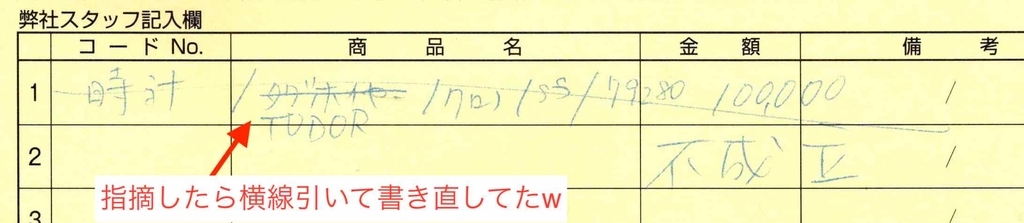 弊社スタッフ記入欄
コード No. 商品名 金額 備考
1 時計 / タグホイヤー / クロノ / SS / 79280 100,000 /
TUDOR
2 不成立 /
指摘したら横線引いて書き直してたw
3